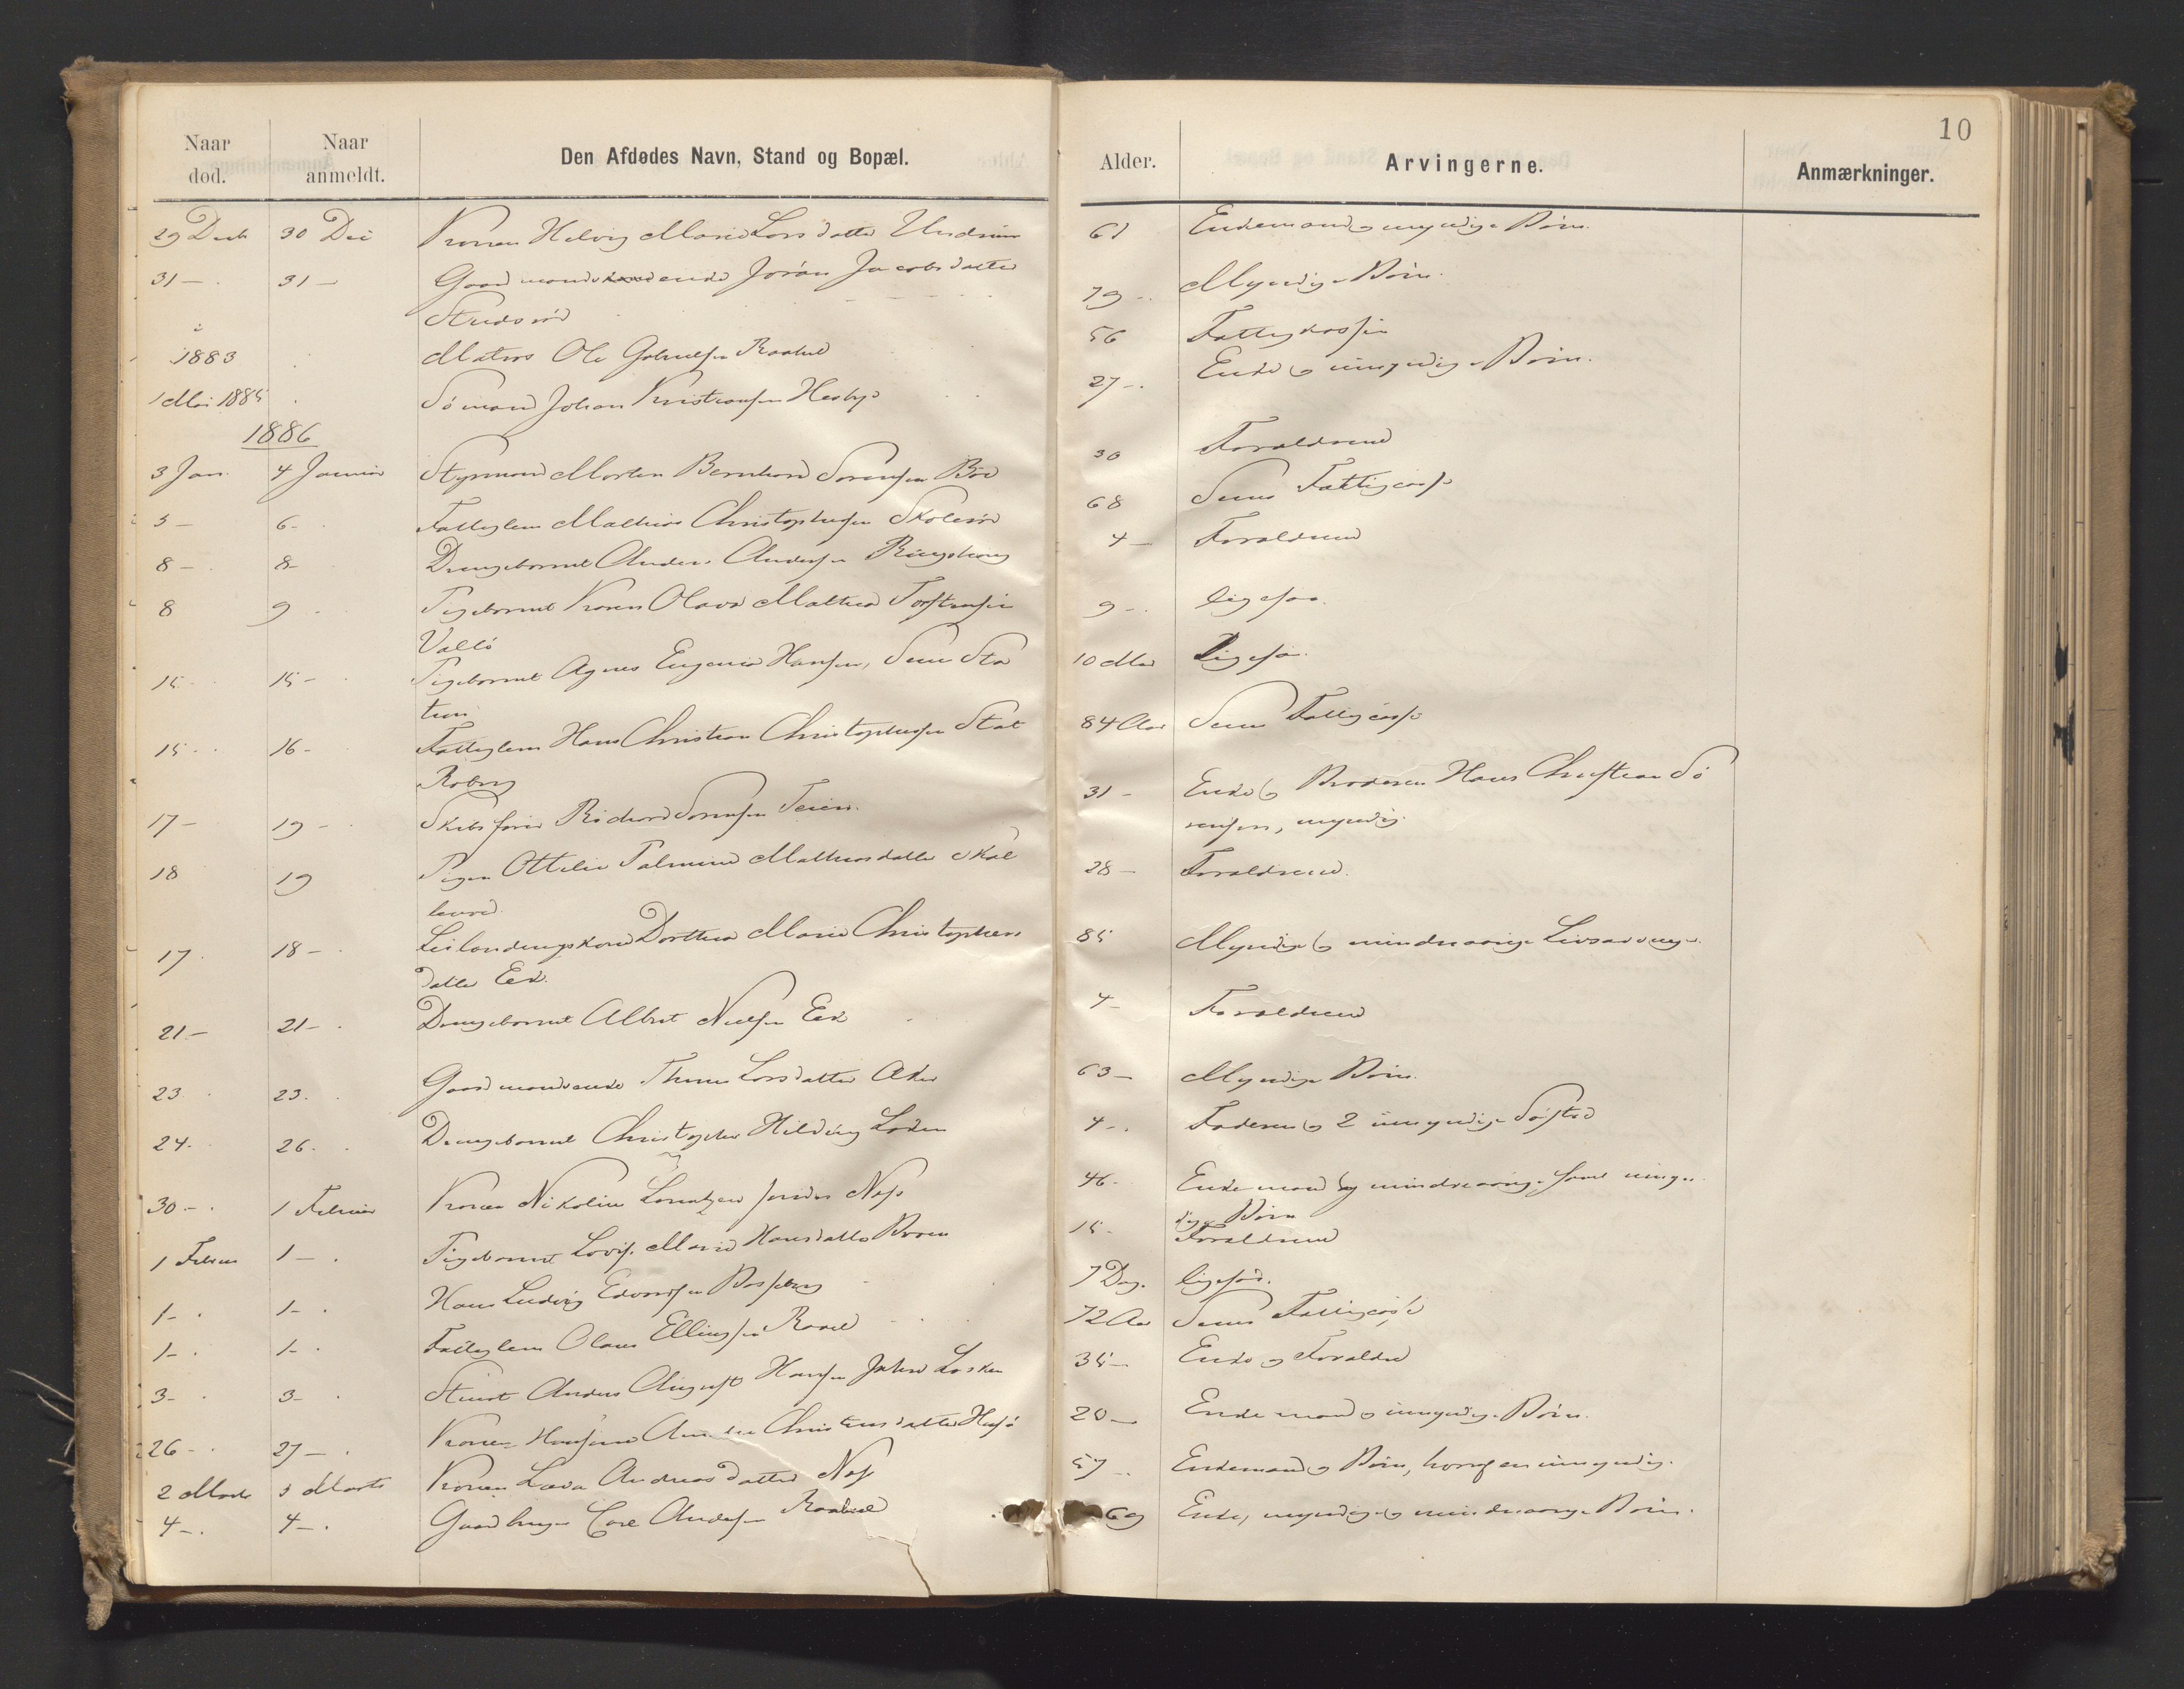 10
Naar død.
Naar anmeldt.
Den Afdødes Navn, Stand og Bopæl.
Alder.
Arvingerne.
Anmærkninger.
29 Decb 30 Dec Konen Helvig Marie Larsdatter Undrum 61 Enkemand og myndige Børn.
31 – 31 – Gaardmandsenke Joran Jacobsdatter 79 – Myndige Børn.
i
1883 Matros Ole Gabrielsen Raabel 56 Fattigkassen
1 Mai 1885 Sømand Johan Kristiansen Hesby 27 – Enke og umyndige Børn.
1886
3 Jan. 4 Januar Styrmand Morten Bernhard Sørensen Bøe 30 Forældrene
5 – 6 – Fattiglem Mathias Christophersen 68 Sems Fattigcasse
8 – 8 – Drengebarnet Anders Andersen Ringshaug 4 – Forældrene
8 9 Pigebarnet Karen Olava Mathea Torstensen 9 – ligesaa.
Vallø
15 15 – Pigebarnet Agnes Eugenie Hansen, Sem Sta 10 Md Ligesaa.
tion
15 – 16 – Fattiglem Hans Christian Christophersen 84 Aar Sems Fattigcasse
17 – 19 – Skibsfører Richard Sørensen Teien. 31 – Enke og Broderen Hans Christian Sø
rensen, myndig.
18 19 Pigen Ottilie Palmine Mathiasdatter Skal 28 – Forældrene.
lerød.
17 18 – Leilændingskone Dorthea Marie Christophers 85 Myndige og mindreaarige Livsarvinger.
datter Eek.
21 – 21 – Drengebarnet Albert Nielsen Eek 4 – Forældrene
23 23. Gaardmandsenke Larsdatter Aker 63 – Myndige Børn.
24. 26. Drengebarnet Christopher Hilding Loken 4 – Faderen og 2 umyndige Søstre
30 – 1 Februar Konen Nikoline Lorentzen Næs 46 – Enkemand og mindreaarige samt umyn
dige Børn
1 Februar 1 – Pigebarnet Lovise Marie Hansdatter Roren 15 – Forældrene
1 – 1 – Hans Ludvig Edvardsen 7 Dag. ligesaa.
1 – 1 – Fattiglem Olaus Ellingsen Ravel 72 Aar Sems Fattigcasse
3 – 3 – Anders August Hansen 35 – Enke og Forældre
26 – 27 – Konen Christensdatter Husø 20 – Enkemand og umyndige Børn.
2 Marts 3 Marts Konen Andreasdatter Næs 57 – Enkemand og Børn, hvoraf en umyndig.
4 – 4 – Gaardbruger Carl Andersen Raabel 69 Enke, myndige og mindreaarige Børn.